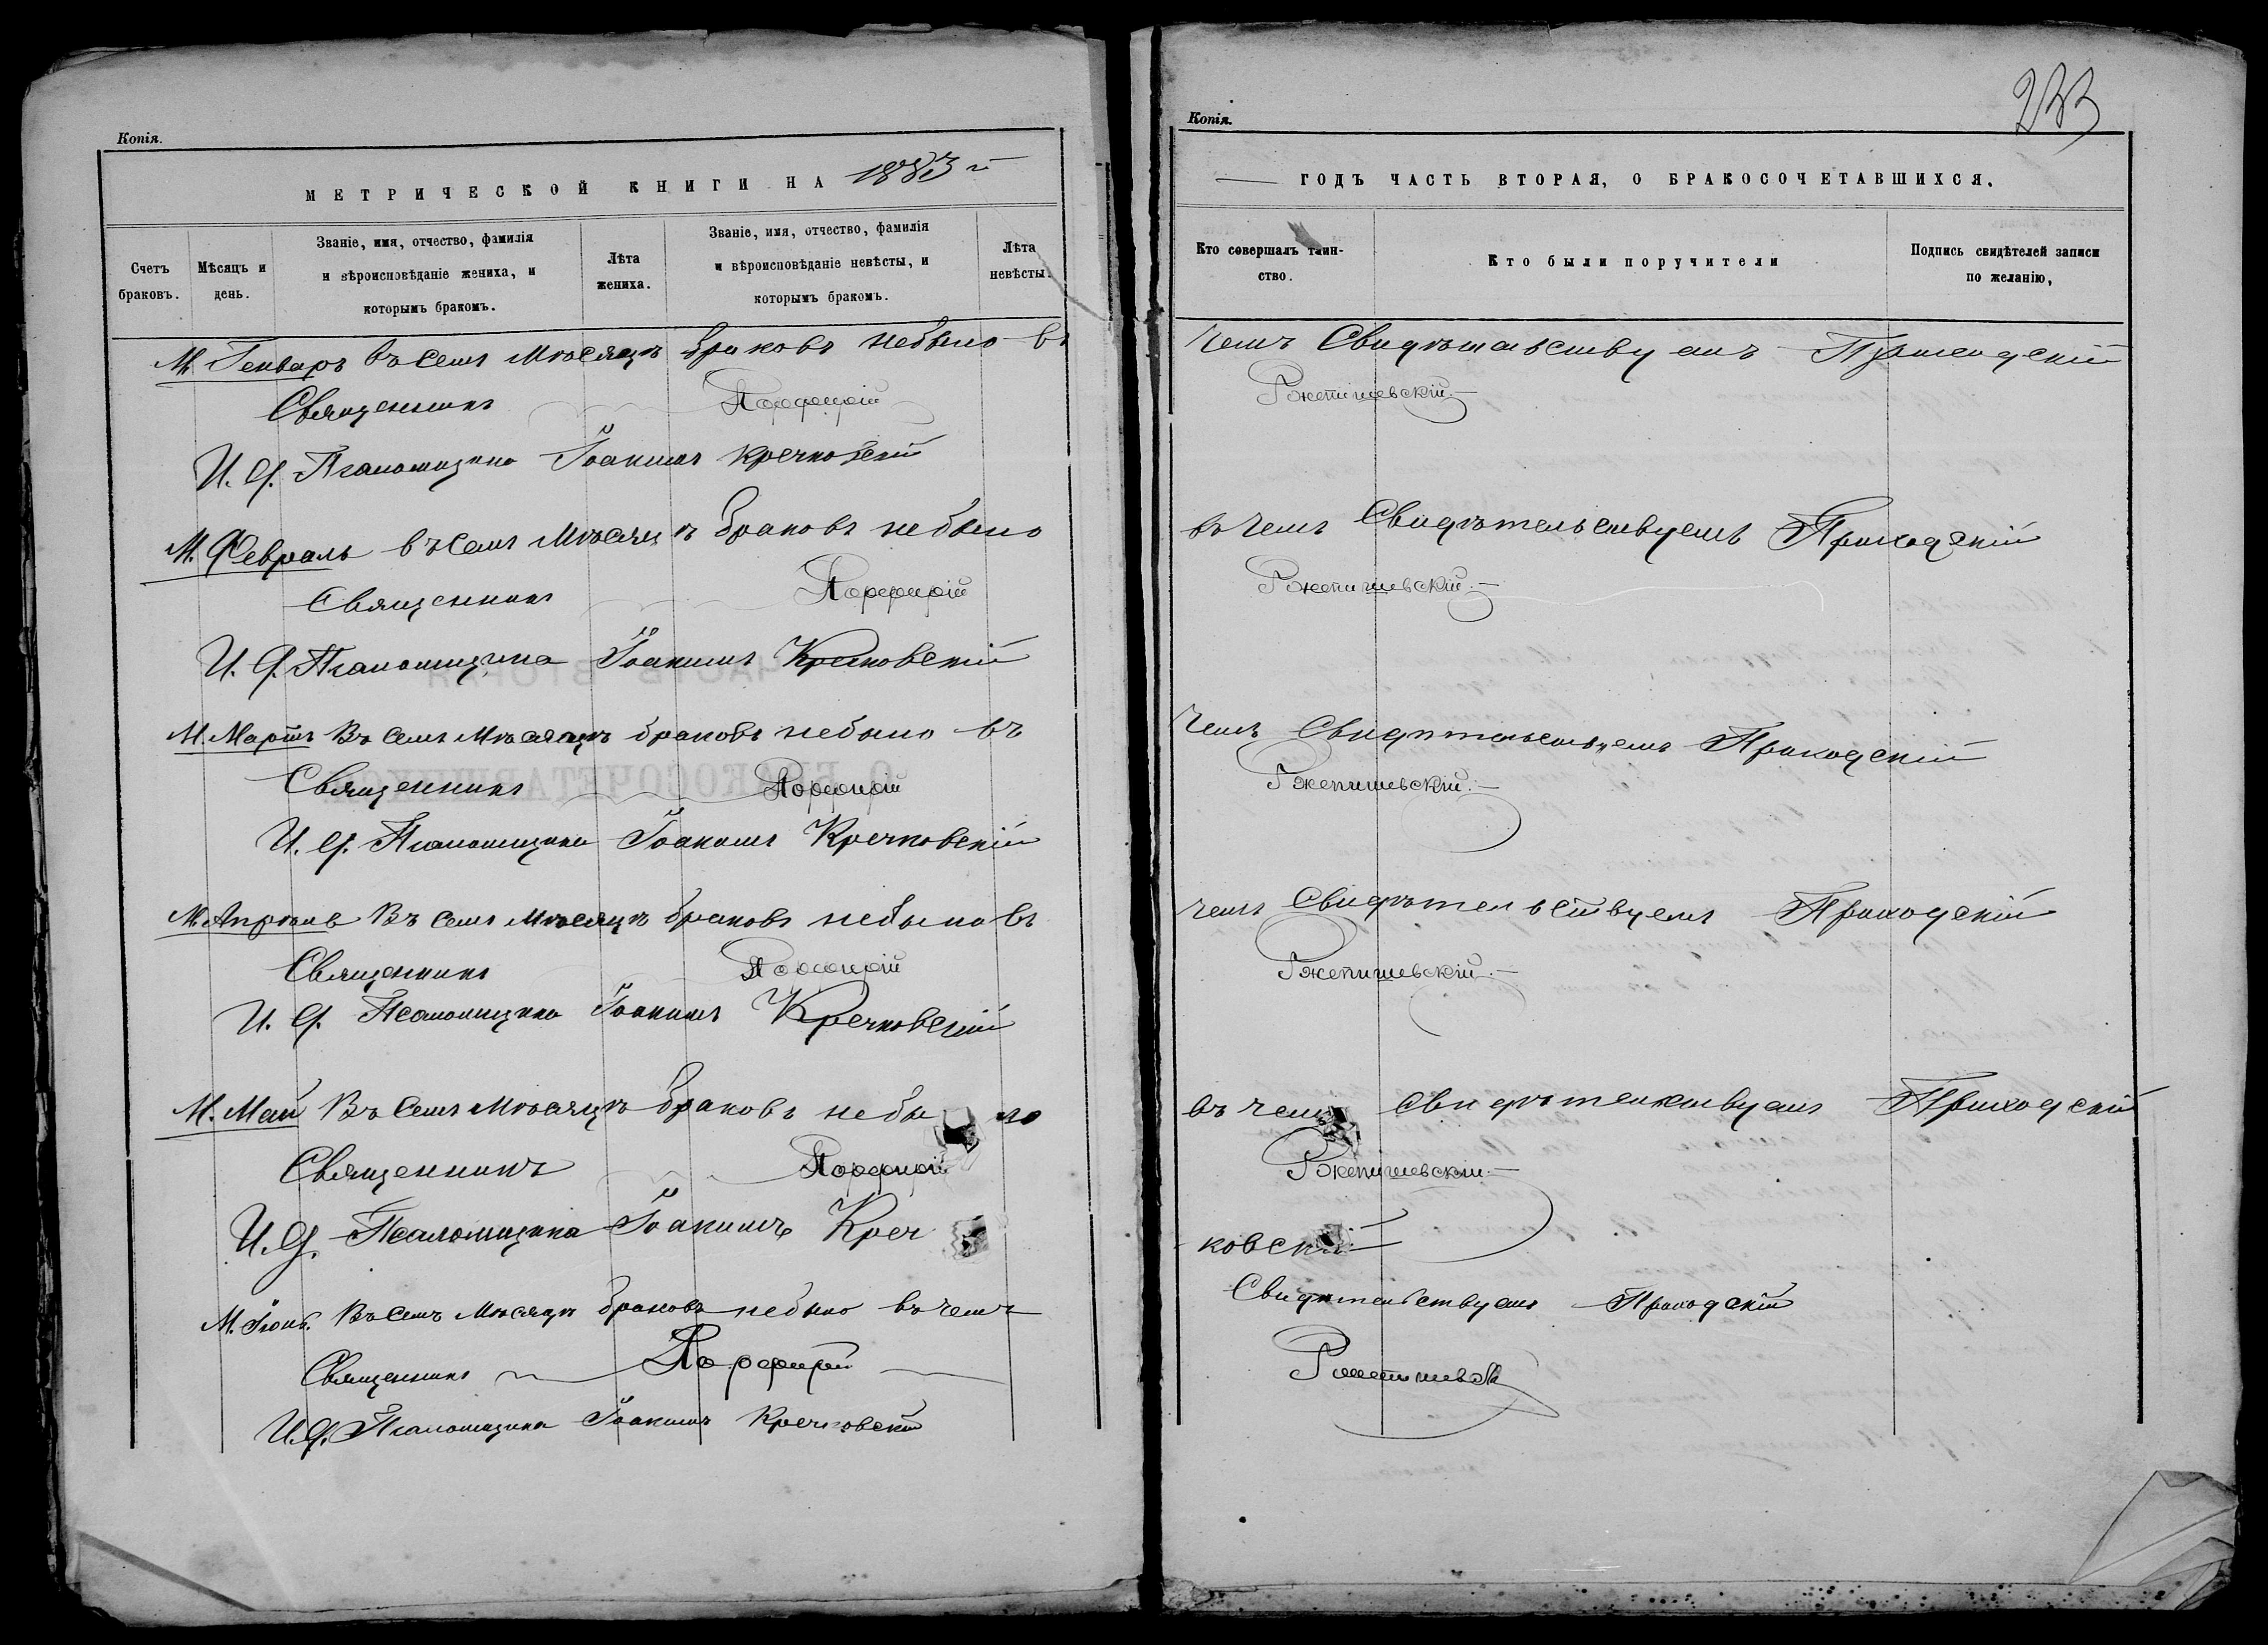 Копія.
МЕТРИЧЕСКОЙ КНИГИ НА 1883 й
Счетъ браковъ.
Мѣсяцъ и день.
Званіе, имя, отчество, фамилія и вѣроисповѣданіе жениха, и которымъ бракомъ.
Лѣта жениха.
Званіе, имя, отчество, фамилія и вѣроисповѣданіе невѣсты, и которымъ бракомъ.
Лѣта невѣсты.
М. Генварь въ семъ Мѣсяцѣ браковъ небыло въ
Священникъ Порфирій
И. Д. Псаломщика Іоакимъ Кречковскій
М. Февраль въ семъ Мѣсяцѣ браковъ небыло
Священникъ Порфирій
И. Д. Псаломщика Іоакимъ Кречковскій
М. Мартъ Въ семъ Мѣсяцѣ браковъ небыло въ
Священникъ Порфирій
И. Д. Псаломщика Іоакимъ Кречковскій
М. Апрѣль Въ семъ Мѣсяцѣ браковъ небыло въ
Священникъ Порфирій
И. Д. Псаломщика Іоакимъ Кречковскій
М. Май Въ семъ Мѣсяцѣ браковъ небы ло
Священникъ Порфирій
И. Д. Псаломщика Іоакимъ Креч
М. Іюнь. Въ семъ Мѣсяцѣ браковъ небыло въ чемъ
Священникъ Порфирій
И. Д. Псаломщика Іоакимъ Кречковскій
233
Копія.
ГОДЪ ЧАСТЬ ВТОРАЯ, О БРАКОСОЧЕТАВШИХСЯ.
Кто совершалъ таинство.
Кто были поручители
Подпись свидѣтелей записи по желанію,
чемъ Свидѣтельствуемъ Приходскій
Ржепишевскій.
въ чемъ Свидѣтельствуемъ Приходскій
Ржепишевскій.
чемъ Свидѣтельствуемъ Приходскій
Ржепишевскій.
чемъ Свидѣтельствуемъ Приходскій
Ржепишевскій.
въ чемъ свидѣтельствуемъ Приходскій
Ржепишевскій.
ковскій
Свидѣтельствуемъ Приходскій
Ржепишевскій